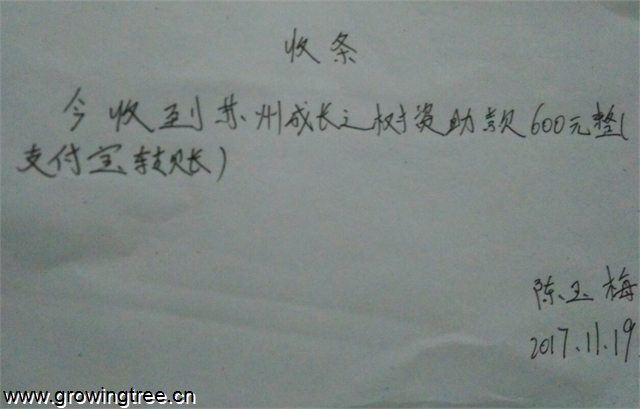 收条
今收到苏州成长之树资助款600元整(
支付宝转账)
陈玉梅
2017.11.19
www.growingtree.cn